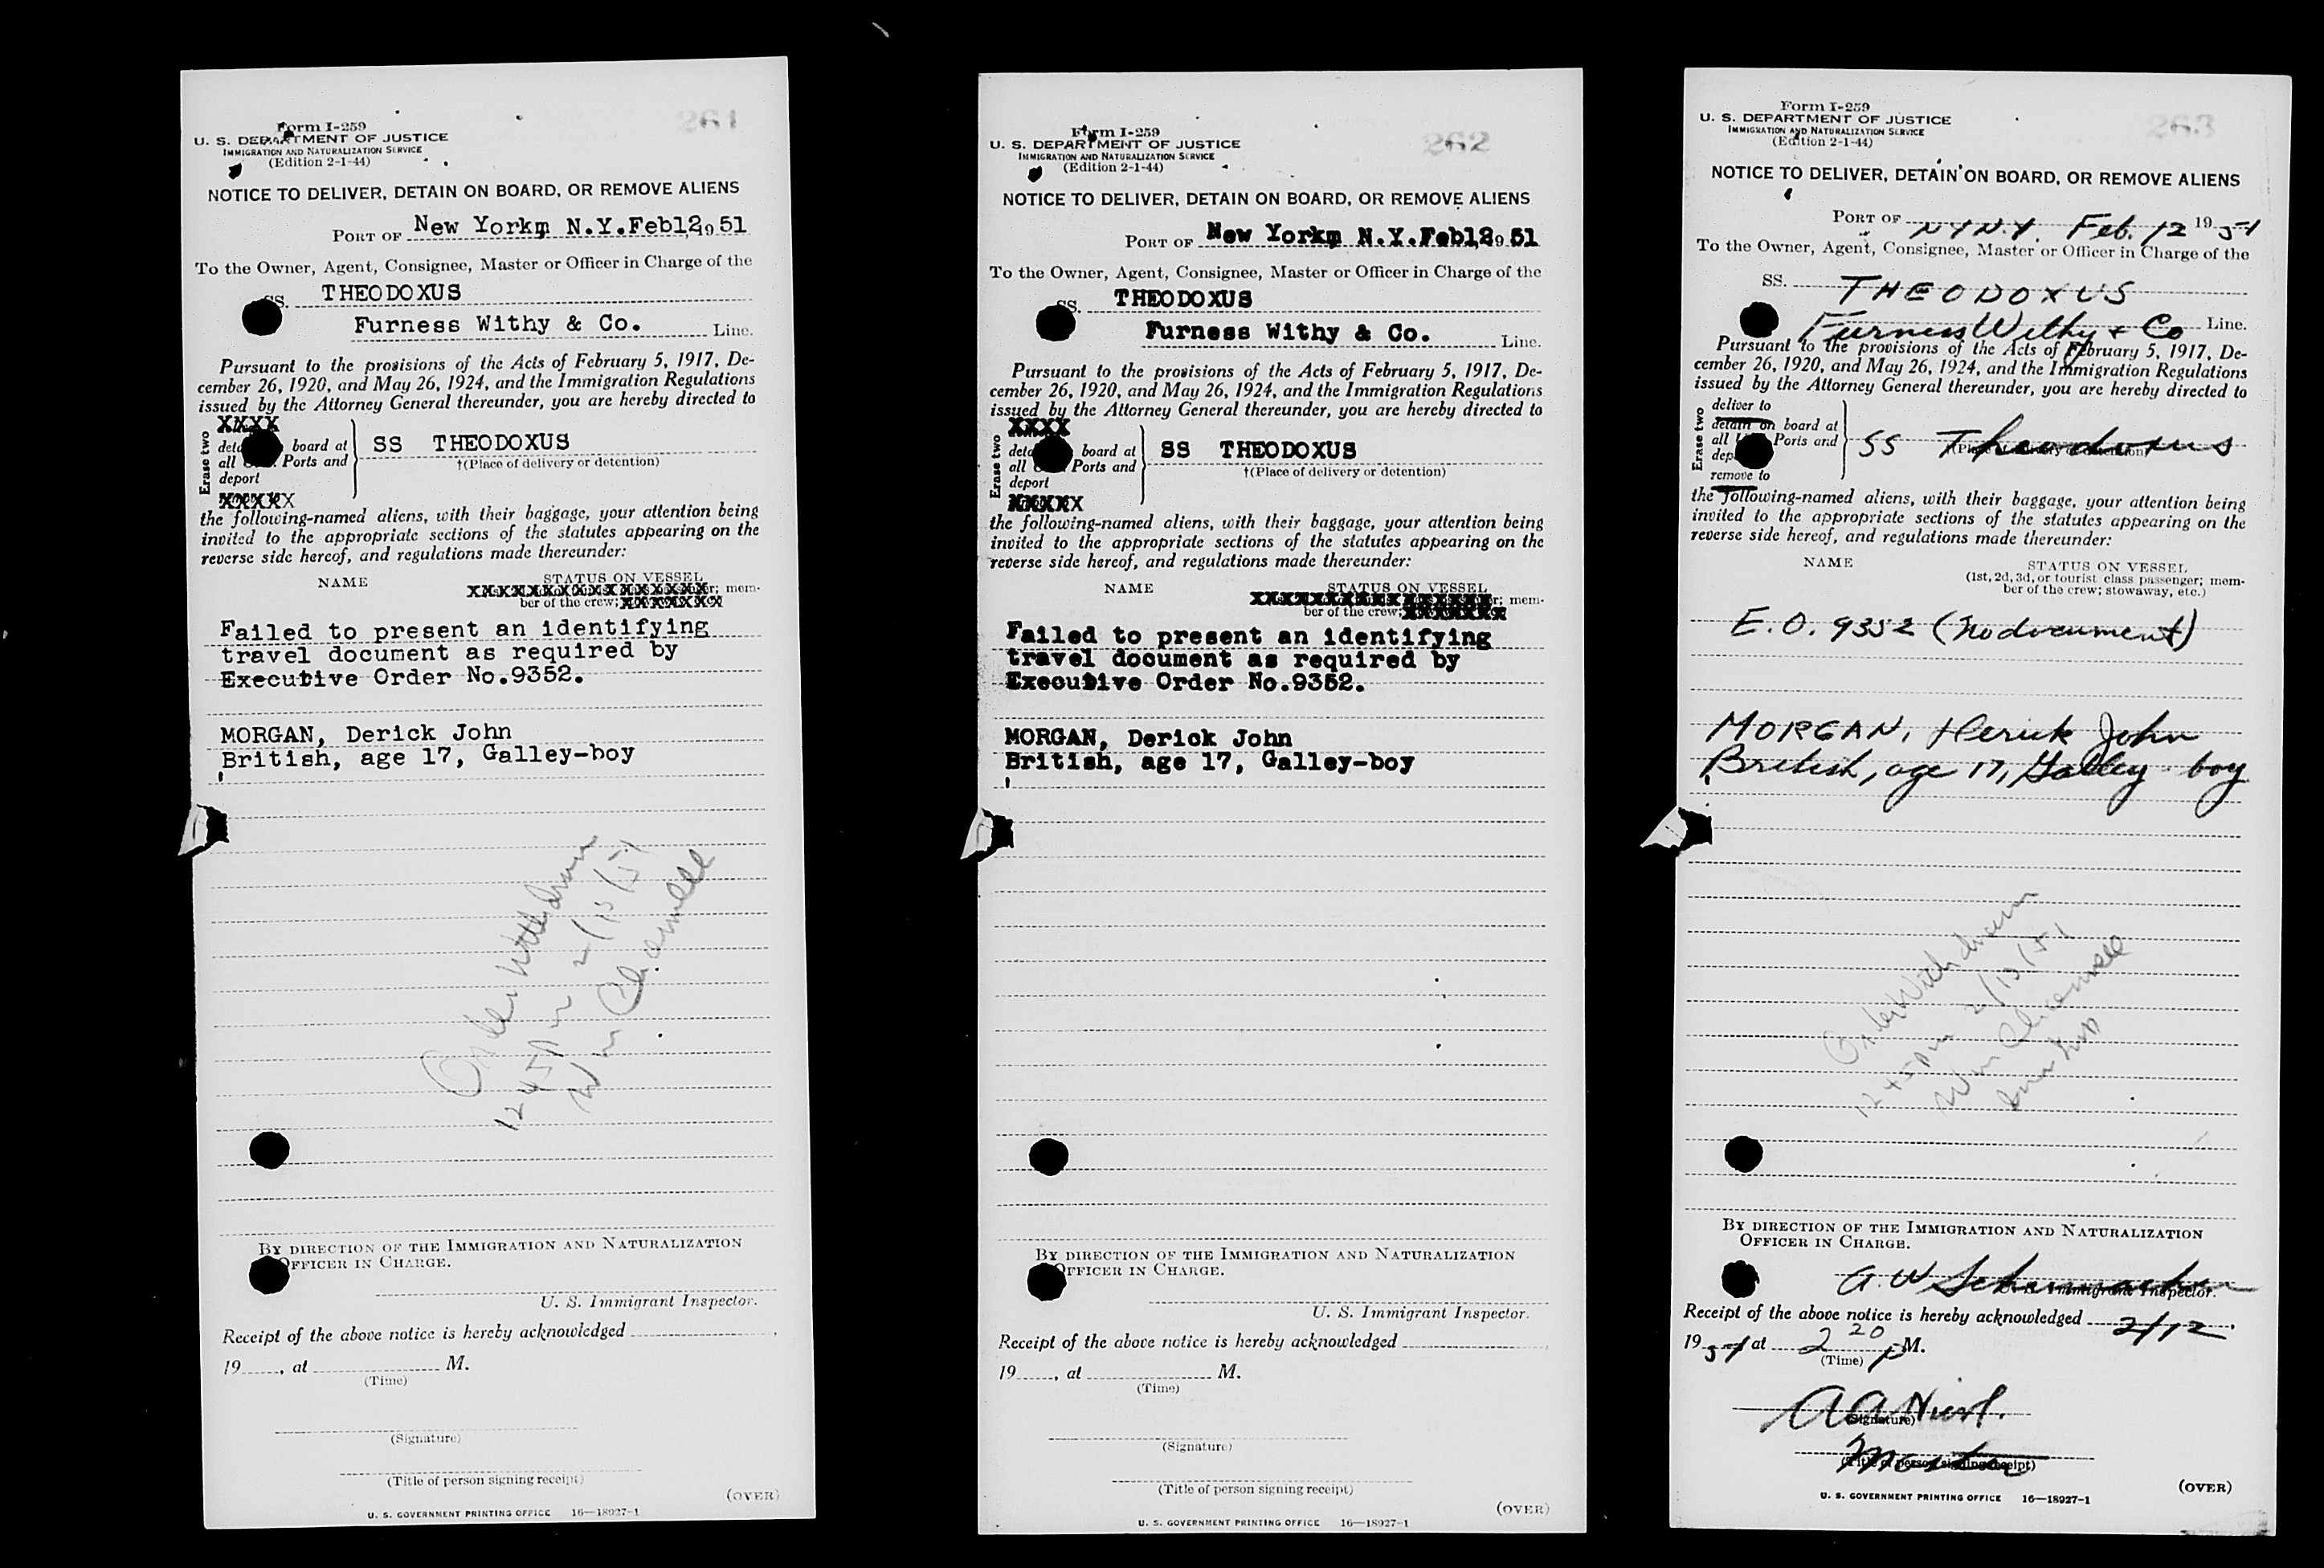 261
Form I-259
U. S. DEPARTMENT OF JUSTICE
IMMIGRATION AND NATURALIZATION SERVICE
(Edition 2-1-44)
NOTICE TO DELIVER, DETAIN ON BOARD, OR REMOVE ALIENS
PORT OF New Yorkm N.Y.Feb12, 1951
To the Owner, Agent, Consignee, Master or Officer in Charge of the
SS. THEODOXUS
Furness Withy & Co. Line.
Pursuant to the provisions of the Acts of February 5, 1917, De-
cember 26, 1920, and May 26, 1924, and the Immigration Regulations
issued by the Attorney General thereunder, you are hereby directed to
Erase two
XXXX
board at
all Ports and
deport
XXXXX
SS THEODOXUS
†(Place of delivery or detention)
the following-named aliens, with their baggage, your attention being
invited to the appropriate sections of the statutes appearing on the
reverse side hereof, and regulations made thereunder:
NAME STATUS ON VESSEL
mem-
ber of the crew;
Failed to present an identifying
travel document as required by
Executive Order No.9352.
MORGAN, Derick John
British, age 17, Galley-boy
Order Withdrawn
1245 pm 2/13/51
Wm
BY DIRECTION OF THE IMMIGRATION AND NATURALIZATION
OFFICER IN CHARGE.
U. S. Immigrant Inspector.
Receipt of the above notice is hereby acknowledged
19, at M.
(Time)
(Signature)
(Title of person signing receipt)
(OVER)
U. S. GOVERNMENT PRINTING OFFICE 16—18927-1
262
Form I-259
U. S. DEPARTMENT OF JUSTICE
IMMIGRATION AND NATURALIZATION SERVICE
(Edition 2-1-44)
NOTICE TO DELIVER, DETAIN ON BOARD, OR REMOVE ALIENS
PORT OF New Yorkm N.Y.Feb12, 1951
To the Owner, Agent, Consignee, Master or Officer in Charge of the
SS. THEODOXUS
Furness Withy & Co. Line.
Pursuant to the provisions of the Acts of February 5, 1917, De-
cember 26, 1920, and May 26, 1924, and the Immigration Regulations
issued by the Attorney General thereunder, you are hereby directed to
Erase two
XXXX
board at
all Ports and
deport
XXXXX
SS THEODOXUS
†(Place of delivery or detention)
the following-named aliens, with their baggage, your attention being
invited to the appropriate sections of the statutes appearing on the
reverse side hereof, and regulations made thereunder:
NAME STATUS ON VESSEL
mem-
ber of the crew;
Failed to present an identifying
travel document as required by
Executive Order No.9352.
MORGAN, Derick John
British, age 17, Galley-boy
BY DIRECTION OF THE IMMIGRATION AND NATURALIZATION
OFFICER IN CHARGE.
U. S. Immigrant Inspector.
Receipt of the above notice is hereby acknowledged
19, at M.
(Time)
(Signature)
(Title of person signing receipt)
(OVER)
U. S. GOVERNMENT PRINTING OFFICE 16—18927-1
263
Form I-259
U. S. DEPARTMENT OF JUSTICE
IMMIGRATION AND NATURALIZATION SERVICE
(Edition 2-1-44)
NOTICE TO DELIVER, DETAIN ON BOARD, OR REMOVE ALIENS
PORT OF N Y N.Y. Feb. 12 1951
To the Owner, Agent, Consignee, Master or Officer in Charge of the
SS. THEODOXUS
Furness Withy & Co Line.
Pursuant to the provisions of the Acts of February 5, 1917, De-
cember 26, 1920, and May 26, 1924, and the Immigration Regulations
issued by the Attorney General thereunder, you are hereby directed to
Erase two
deliver to
detain on board at
all Ports and
remove to
SS Theodoxus
the following-named aliens, with their baggage, your attention being
invited to the appropriate sections of the statutes appearing on the
reverse side hereof, and regulations made thereunder:
NAME STATUS ON VESSEL
(1st, 2d, 3d, or tourist class passenger; mem-
ber of the crew; stowaway, etc.)
E.O. 9352 (no document)
MORGAN, Derick John
British, age 17, Galley-boy
Order Withdrawn
1245 pm 2/13/51
Wm
BY DIRECTION OF THE IMMIGRATION AND NATURALIZATION
OFFICER IN CHARGE.
A W Schumacher
U. S. Immigrant Inspector.
Receipt of the above notice is hereby acknowledged 2/12
1951 at 2 20 P M.
(Time)
(Signature)
Master
(Title of person signing receipt)
(OVER)
U. S. GOVERNMENT PRINTING OFFICE 16—18927-1